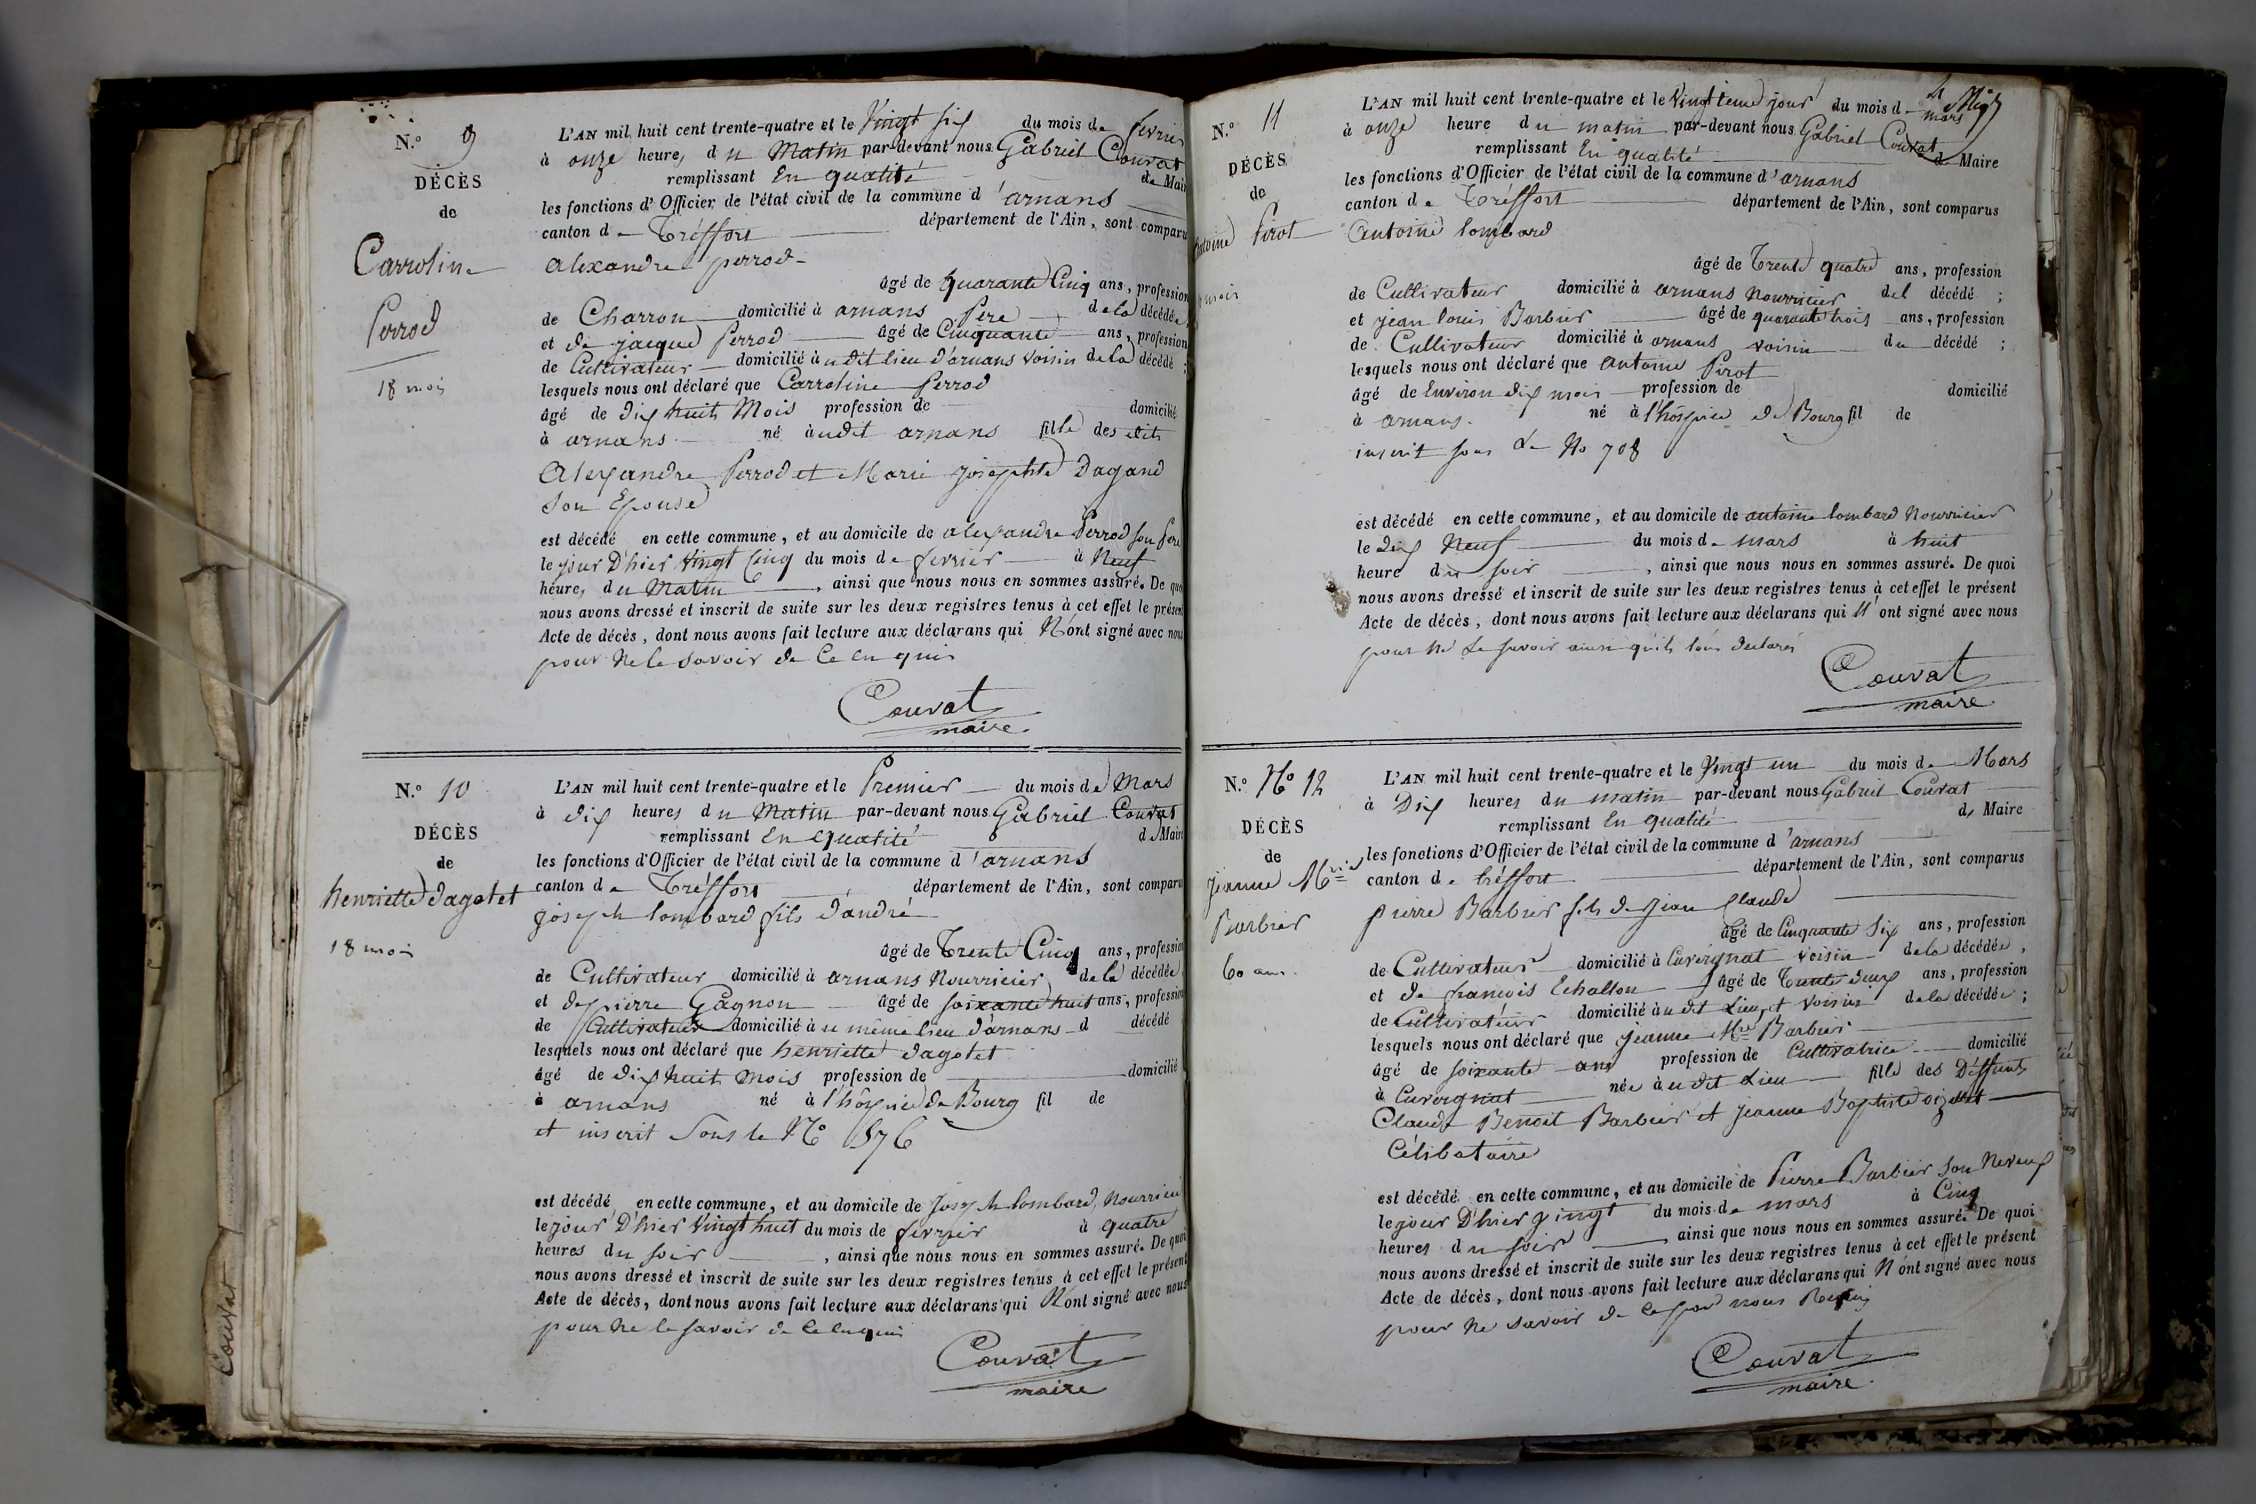 N.° 9
DÉCÈS
de
Carroline
Perrod
18 mois
L'AN mil huit cent trente-quatre et le Vingt six du mois de fevrier
à onze heures du Matin par-devant nous Gabriel Couvat
remplissant En qualité de Maire
les fonctions d'Officier de l'état civil de la commune d'arnans
canton de Tréffort département de l'Ain, sont comparu
Alexandre perrod
âgé de quarante Cinq ans, profession
de Charron domicilié à arnans Pere de la décédée
et de jacque Perrod âgé de Cinquante ans, profession
de Cultivateur domicilié au dit lieu d'arnans voisin de la décédé ;
lesquels nous ont déclaré que Carroline Perrod
âgé de dix huit Mois profession de domicilié
à arnans né audit arnans fille des dits
Alexandre Perrod et Marie josephte Dagand
son Epouse
est décédé en cette commune, et au domicile de alexandre Perrod son Pere
le jour D'hier Vingt Cinq du mois de fevrier à Neuf
heure, du Matin, ainsi que nous nous en sommes assuré. De quoi
nous avons dressé et inscrit de suite sur les deux registres tenus à cet effet le présent
Acte de décès, dont nous avons fait lecture aux déclarans qui N'ont signé avec nous
pour Ne le savoir de ce enquis
Couvat
maire
N.° 10
DÉCÈS
de
henriette dagotet
18 mois
L'AN mil huit cent trente-quatre et le Premier du mois de Mars
à dix heures du Matin par-devant nous Gabriel Couvat
remplissant En qualité d Maire
les fonctions d'Officier de l'état civil de la commune d'arnans
canton de Tréffort département de l'Ain, sont comparu
joseph lombard fils d'andré
âgé de Trente Cinq ans, profession
de Cultivateur domicilié à arnans Nourricier de la décédée
et de pierre Gagnon âgé de soixante huit ans, profession
de Cultivateur domicilié à u même lieu d'arnans d décédé
lesquels nous ont déclaré que henriette dagotet
âgé de dix huit Mois profession de domicilié
à arnans né à l'hôspice de Bourg fil de
et inscrit sous le N° 576
est décédé en cette commune, et au domicile de joseph lombard, Nourricier
le jour D'hier Vingt huit du mois de fevrier à quatre
heures du soir, ainsi que nous nous en sommes assuré. De quoi
nous avons dressé et inscrit de suite sur les deux registres tenus à cet effet le présent
Acte de décès, dont nous avons fait lecture aux déclarans qui N'ont signé avec nous
pour Ne le savoir de ce enquis
Couvat
maire
Couvat
N.° 11
DÉCÈS
de
Antoine Pirot
mois
L'AN mil huit cent trente-quatre et le Vingtieme jour du mois d mars
à onze heure du matin par-devant nous Gabriel Couvat
remplissant En qualité de Maire
les fonctions d'Officier de l'état civil de la commune d'arnans
canton de Tréffort département de l'Ain, sont comparus
Antoine lombard
âgé de Trente quatre ans, profession
de Cultivateur domicilié à arnans Nourricier del décédé ;
et jean louis Barbier âgé de quarante trois ans, profession
de Cultivateur domicilié à arnans voisin du décédé ;
lesquels nous ont déclaré que antoine Pirot
âgé de Environ dix mois profession de domicilié
à arnans. né à l'hospice de Bourg fil de
inscrit sous Le No 708
est décédé en cette commune, et au domicile de antoine lombard Nourricier
le dix Neuf du mois de mars à huit
heure du soir, ainsi que nous nous en sommes assuré. De quoi
nous avons dressé et inscrit de suite sur les deux registres tenus à cet effet le présent
Acte de décès, dont nous avons fait lecture aux déclarans qui N'ont signé avec nous
pour Ne Le savoir ainsi qu'ils l'ons declarés
Couvat
maire
N.° N° 12
DÉCÈS
de
jeanne Mrie
Barbier
60 ans.
L'AN mil huit cent trente-quatre et le Vingt un du mois de Mars
à Dix heures du matin par-devant nous Gabriel Couvat
remplissant En qualité de Maire
les fonctions d'Officier de l'état civil de la commune d'arnans
canton de tréffort département de l'Ain, sont comparus
pierre Barbier fils de jean Claude
âgé de Cinquante Six ans, profession
de Cultivateur domicilié à Cuvergnat voisin de la décédée,
et de françois Echallon âgé de Trente deux ans, profession
de Cultivateur domicilié au dit Lieu, et voisin de la décédée ;
lesquels nous ont déclaré que jeanne Mrie Barbier
âgé de soixante ans profession de Cultivatrice domicilié
à Cuvergnat née au dit Lieu fille des Déffunts
Claude Benoit Barbier et jeanne Baptiste
Célibataire
est décédé en cette commune, et au domicile de Pierre Barbier son Neveux
le jour D'hier vingt du mois de mars à Cinq
heures du soir, ainsi que nous nous en sommes assuré. De quoi
nous avons dressé et inscrit de suite sur les deux registres tenus à cet effet le présent
Acte de décès, dont nous avons fait lecture aux déclarans qui N'ont signé avec nous
pour Ne savoir de ce par nous Requis
Couvat
maire